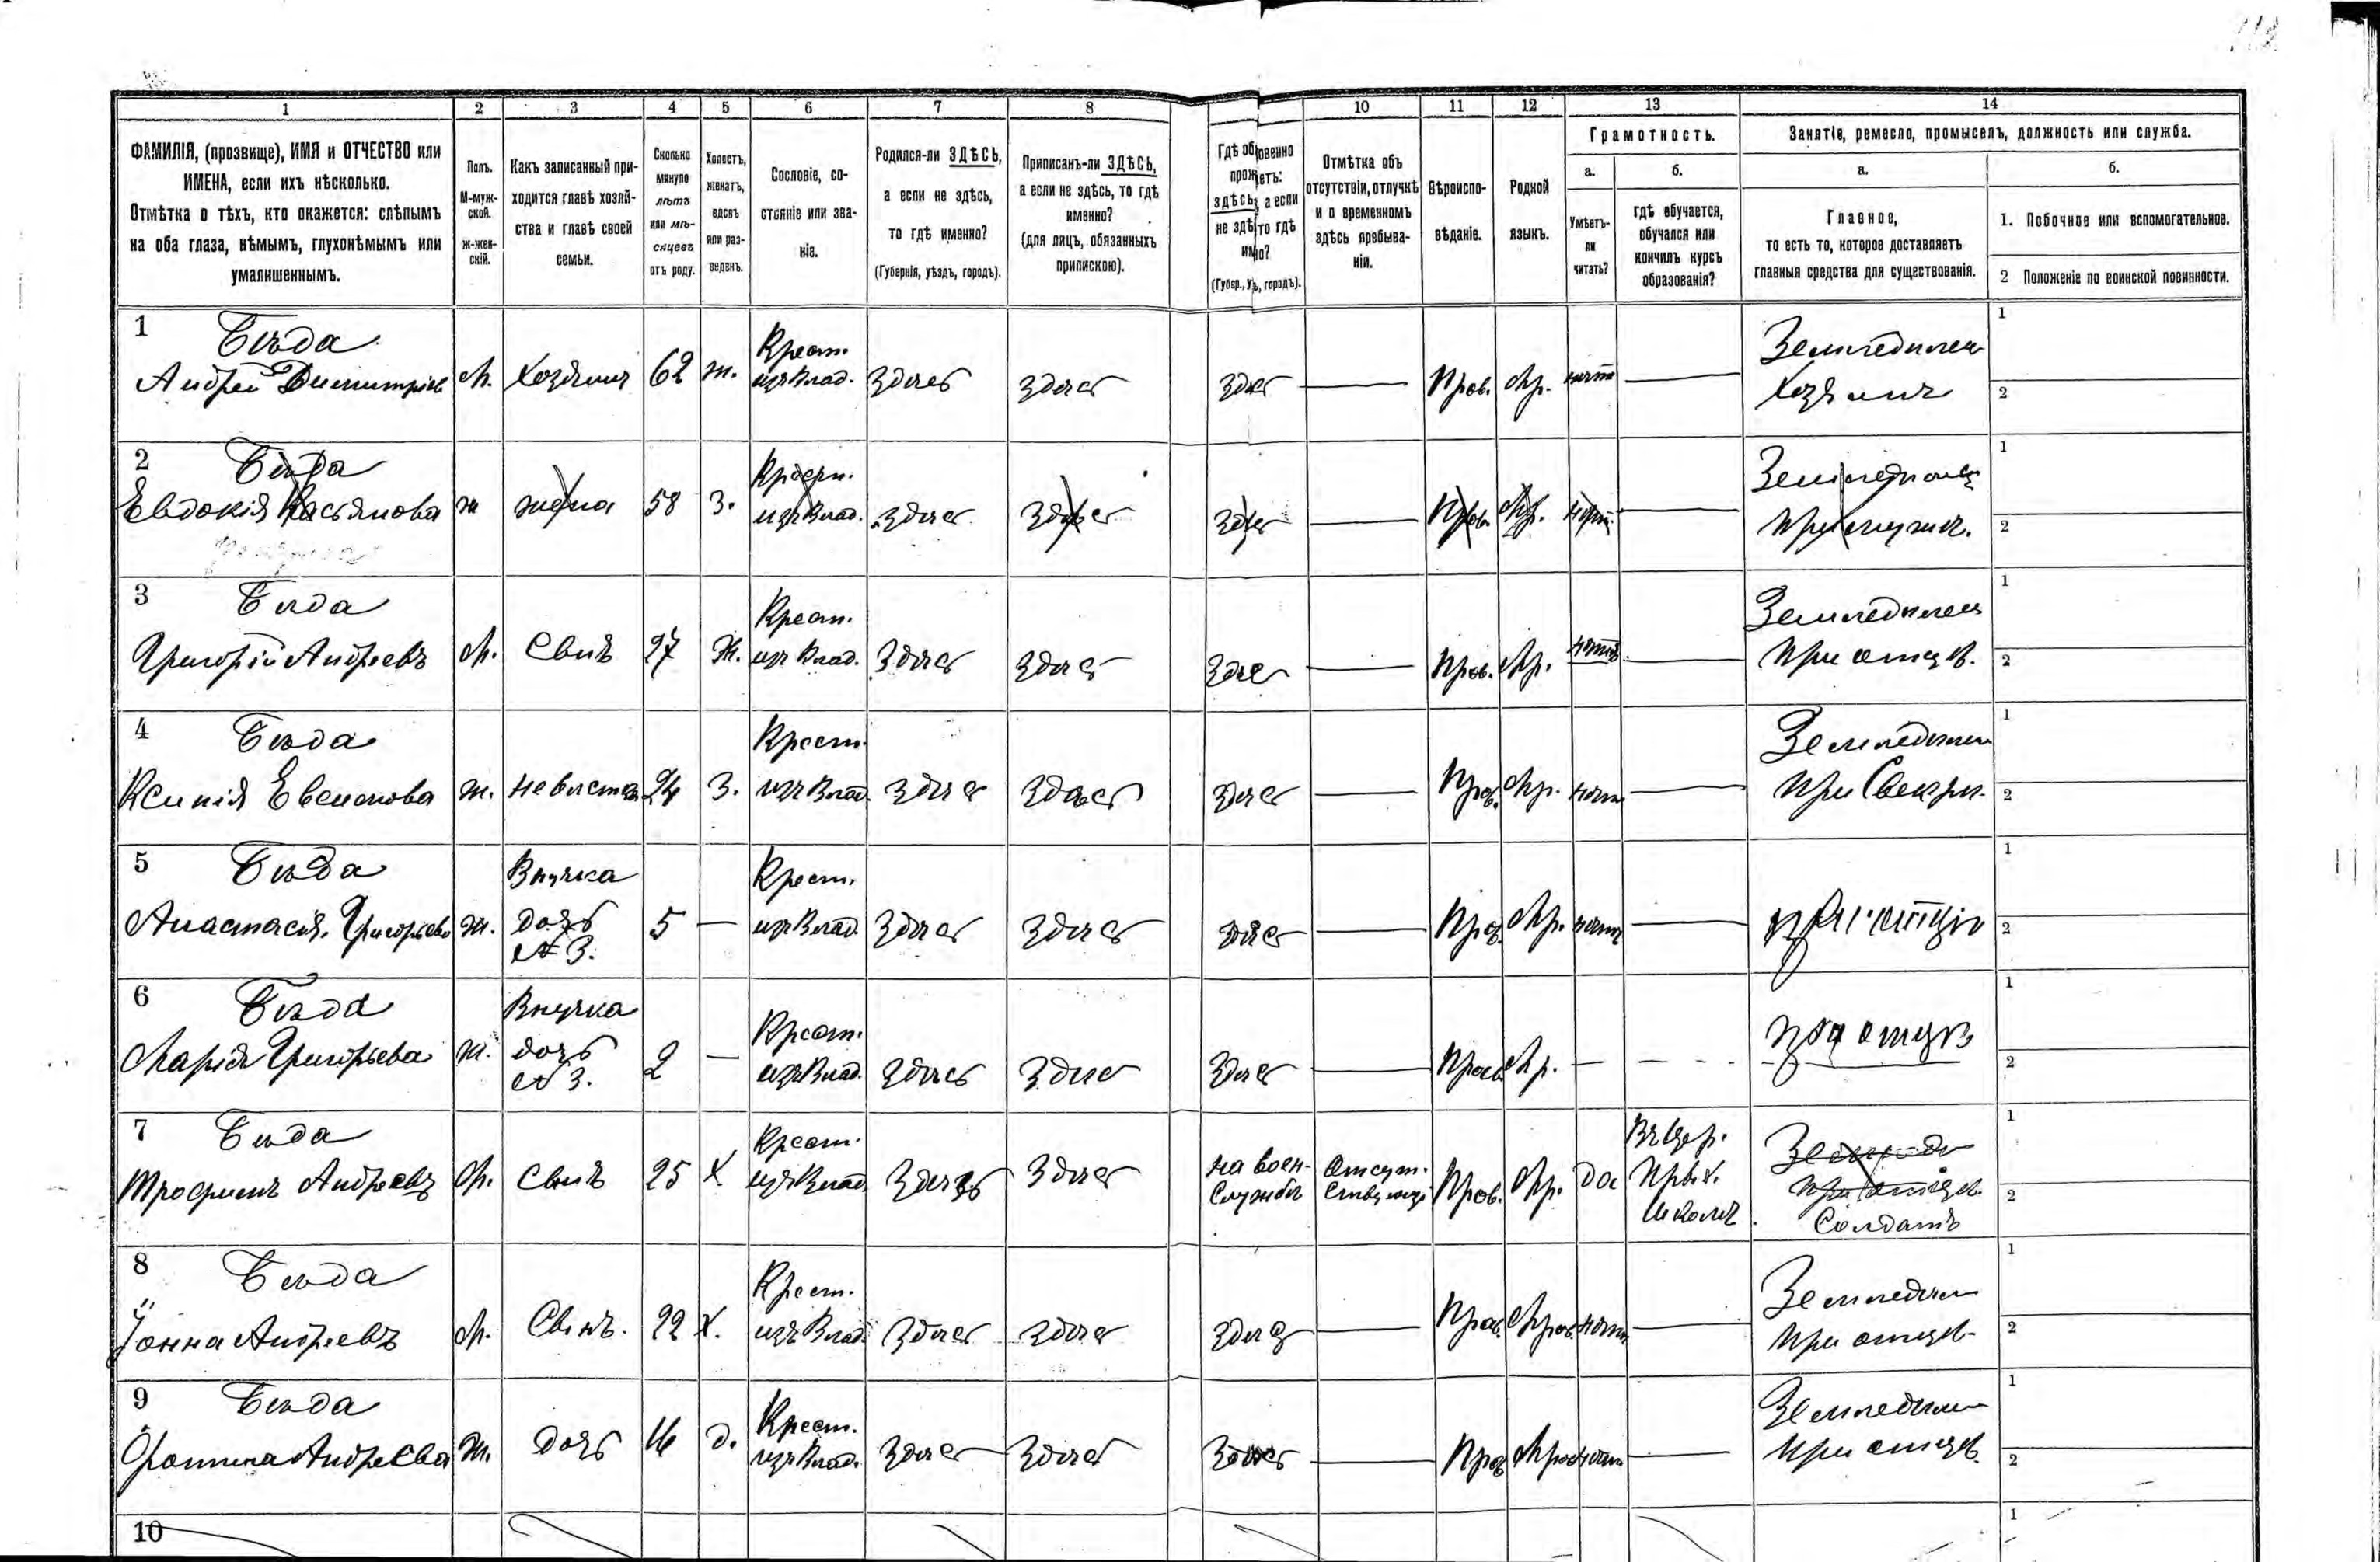 112
1 2 3 4 5 6 7 8 10 11 12 13 14
ФАМИЛІЯ, (прозвище), ИМЯ и ОТЧЕСТВО или
ИМЕНА, если ихъ нѣсколько.
Отмѣтка о тѣхъ, кто окажется: слѣпымъ
на оба глаза, нѣмымъ, глухонѣмымъ или
умалишеннымъ.
Полъ.
М-муж-
ской.
Ж-жен-
скій.
Какъ записанный при-
ходится главѣ хозяй-
ства и главѣ своей
семьи.
Сколько
минуло
лѣтъ
или мѣ-
сяцевъ
отъ роду.
Холостъ,
женатъ,
вдовъ
или раз-
веденъ.
Сословіе, со-
стояніе или зва-
ніе.
Родился-ли ЗДѢСЬ,
а если не здѣсь,
то гдѣ именно?
(Губернія, уѣздъ, городъ).
Приписанъ-ли ЗДѢСЬ,
а если не здѣсь, то гдѣ
именно?
(для лицъ, обязанныхъ
припискою).
Гдѣ обыкновенно
проживаетъ:
здѣсь, а если
не здѣсь, то гдѣ
именно?
(Губер., уѣ, городъ).
Отмѣтка объ
отсутствіи, отлучкѣ
и о временномъ
здѣсь пребыва-
ніи.
Вѣроиспо-
вѣданіе.
Родной
языкъ.
Грамотность.
а.
Умѣетъ-
ли
читать?
б.
гдѣ обучается,
обучался или
кончилъ курсъ
образованія?
Занятіе, ремесло, промыселъ, должность или служба.
а.
Главное,
то есть то, которое доставляетъ
главныя средства для существованія.
б.
1. Побочное или вспомогательное.
2 Положеніе по воинской повинности.
1 Бѣда
Андрей Димитріев
М. Хозяинъ 62 ж. Крест.
из Влад. Здѣсь Здѣсь Здѣсь — Прав. Мр. нѣтъ —
Земледѣлец
Хозяинъ
1
2
2 Бѣда
Евдокія Касьянова
ж жена 58 З. Крест.
из Влад. Здѣсь Здѣсь Здѣсь — Прав. Мр. нѣтъ —
Земледѣлец
при мужѣ.
1
2
3 Бѣда
Григорій Андреевъ
М. Сынъ 27 Ж. Крест.
из Влад. Здѣсь Здѣсь Здѣсь — Прав. Мр. нѣтъ —
Земледѣлец
при отцѣ.
1
2
4 Бѣда
Ксенія Евсеонова
ж. невѣстка 24 З. Крест.
из Влад. Здѣсь Здѣсь Здѣсь — Прав. Мр. нѣтъ —
Земледѣлец
при Свекрѣ.
1
2
5 Бѣда
Анастасія Григорьева
ж. Внучка
дочь
№ 3.
5 — Крест.
из Влад. Здѣсь Здѣсь Здѣсь — Прав. Мр. нѣтъ —
1
2
6 Бѣда
Марія Григорьева
ж. Внучка
дочь
№ 3.
2 — Крест.
из Влад. Здѣсь Здѣсь Здѣсь — Прав. Мр. — —
при отцѣ
1
2
7 Бѣда
Трофимъ Андреевъ
М. Сынъ 25 Х Крест.
из Влад. Здѣсь Здѣсь
на воен-
Службѣ
Отсут-
ствующ.
Прав. Мр. да
Въ Цер.
Прих.
школѣ
при отцѣ
Солдатъ
1
2
8 Бѣда
Іоанна Андреевъ
М. Сынъ. 22 Х. Крест.
изъ Влад. Здѣсь Здѣсь Здѣсь — Прав. Мр. нѣтъ —
Земледѣл
при отцѣ
1
2
9 Бѣда
Фотина Андреева
Ж. дочь 16 д. Крест.
из Влад. Здѣсь Здѣсь Здѣсь — Прав. Мр. нѣтъ —
Земледѣл
при отцѣ.
1
2
10
1